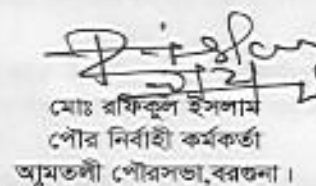 মোঃ রফিকুল ইসলাম
পৌর নির্বাহী কর্মকর্তা
আমতলী পৌরসভা,বরগুনা।